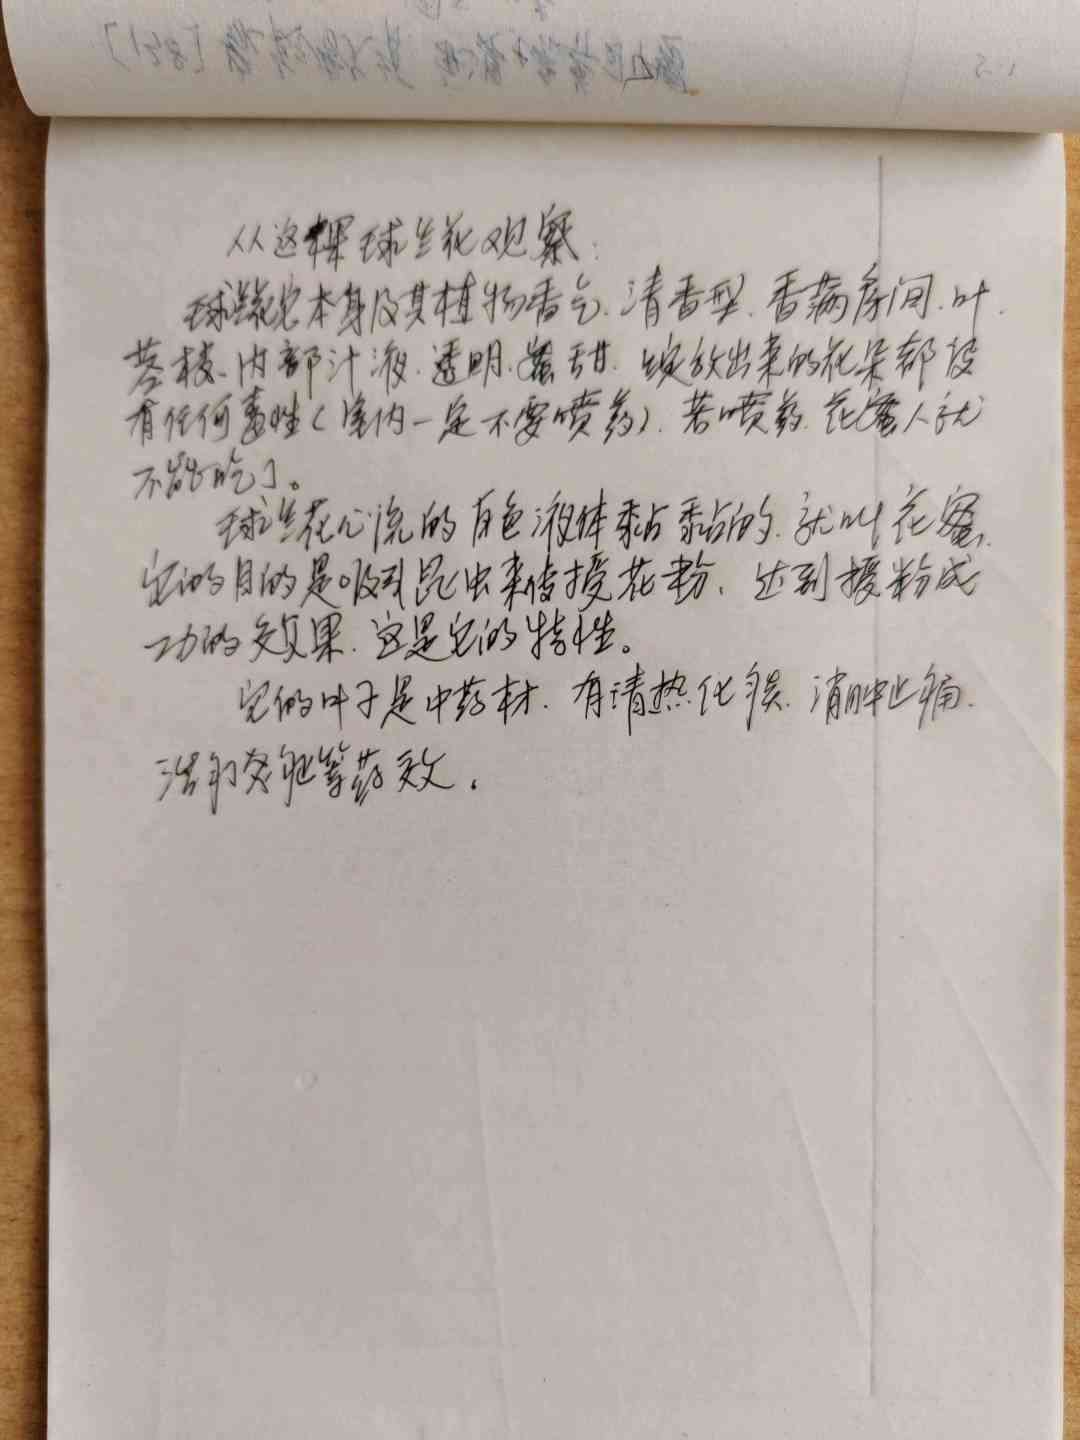 从这棵球兰花观察:
球兰花它本身及其植物香气.清香型.香满房间.叶.
茎枝.内部汁液.透明.蜜甜.绽放出来的花朵都没
有任何毒性(室内一定不要喷药).若喷药.花蜜人就
不能吃了。
球兰花心流的有色液体黏黏的.就叫花蜜.
它的目的是吸引昆虫来传授花粉.达到授粉成
功的效果.这是它的特性。
它的叶子是中药材.有清热化痰.消肿止痛.
治等药效.